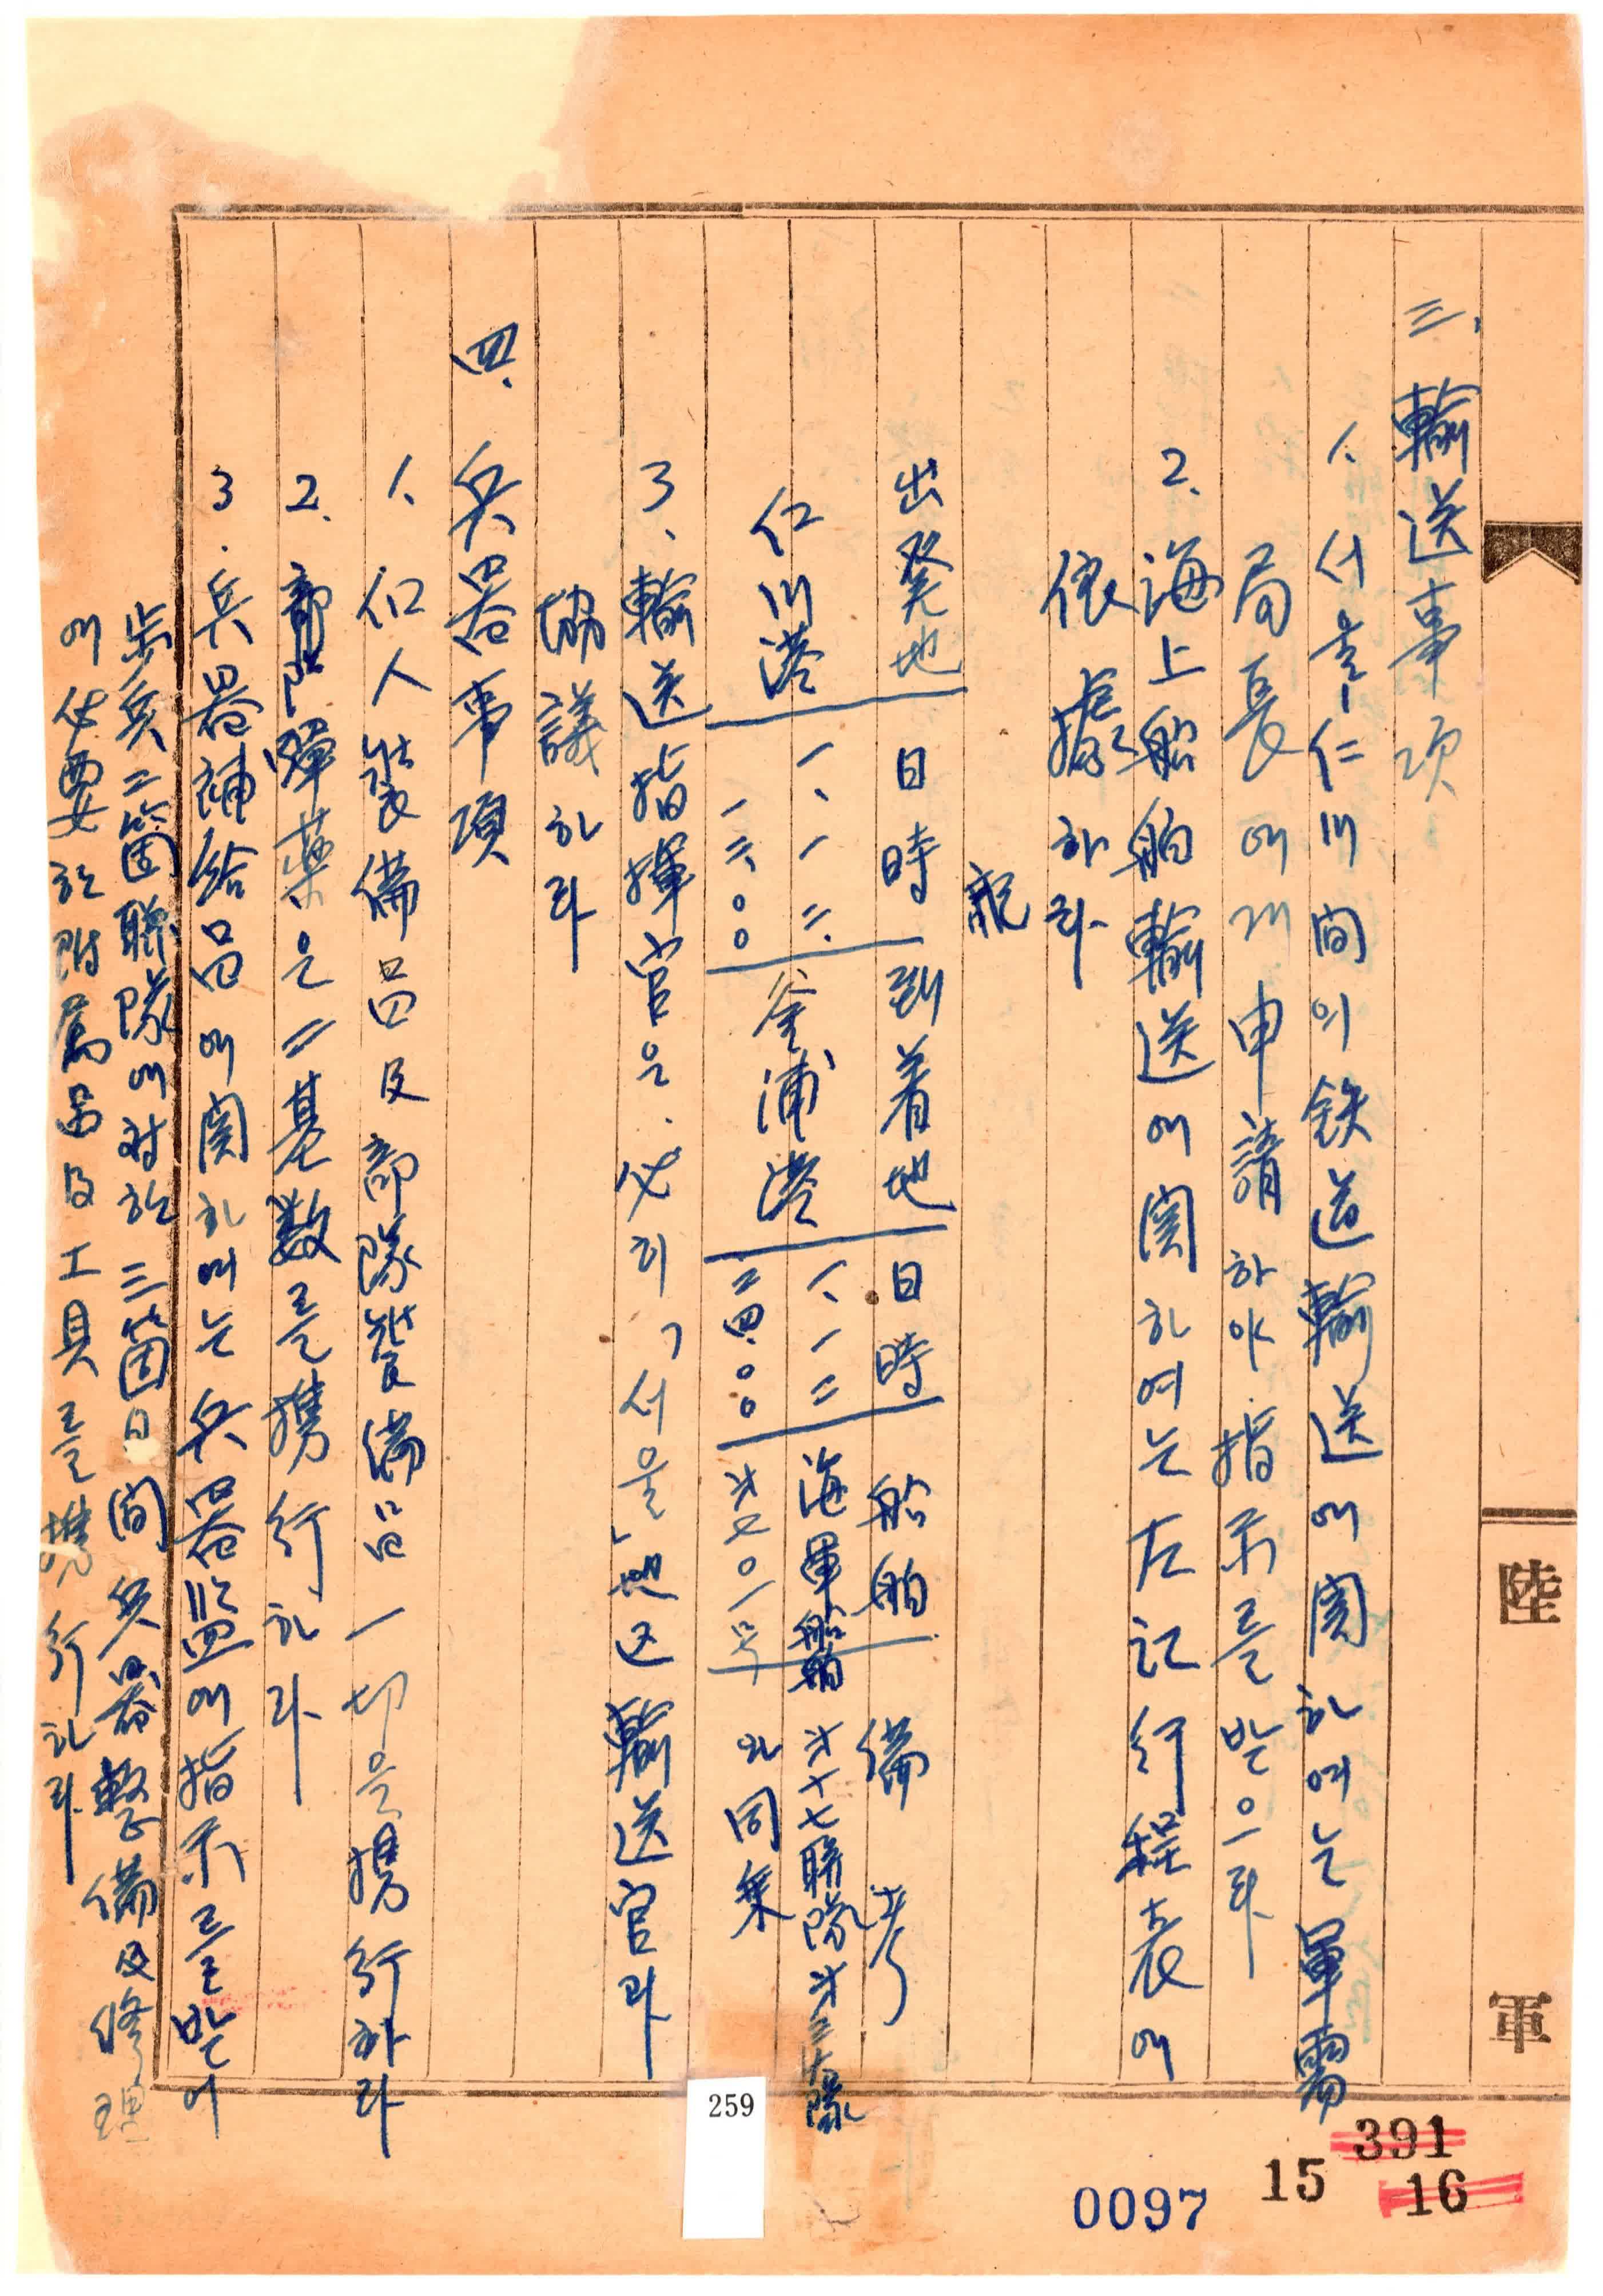 三、輸送事項
1、서울-仁川間의 鉄道輸送에 関하여는 軍需
局長에게 申請하야 指示를 받으라
2、海上船舶輸送에 関하여는 左記行程表에
依據하라
出発地 日時 到着地 日時 船舶 備考
仁川港 一、一二、 一三、〇〇 釜浦港 一、一二 二四、〇〇 海軍船舶 才七〇一号 才十七聯隊才三大隊와 同乗
3、輸送指揮官은 必히 서울地区輸送官과
協議하라
四、兵器事項
1、個人裝備品及部隊裝備品一切을 携行하라
2、部隊彈薬은 二基数를 携行하라
3.兵器補給品에 関하여는 兵器監에 指示를 받어
步兵二箇聯隊에 対한 三箇月間 兵器整備及修理
에 必要한 附属品及工具를 携行하라
陸
軍
259
391
15
16
0097